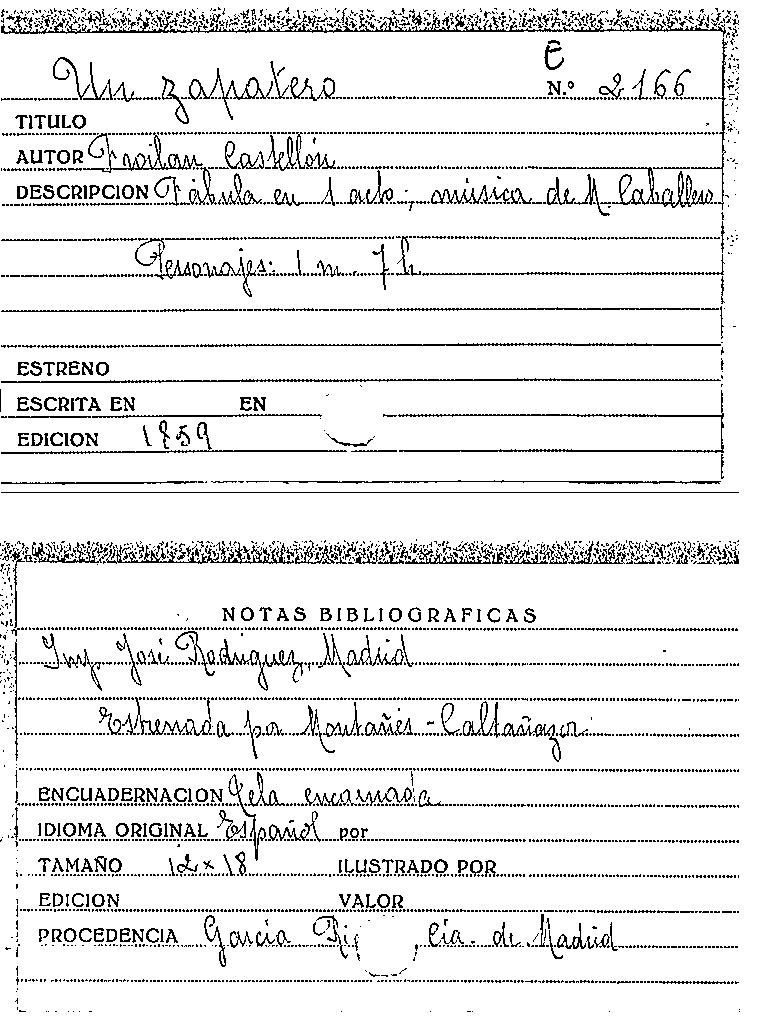 E
Un zapatero N.º 2166
TITULO
AUTOR Froilan Castellón
DESCRIPCION Fábula en 1 acto; música de M. Caballero
Personajes: 1 m. 7 h.
ESTRENO
ESCRITA EN EN
EDICION 1859
NOTAS BIBLIOGRAFICAS
Imp. José Rodriguez, Madrid
Estrenada por Montañés - Caltañazor.
ENCUADERNACION Tela encarnada
IDIOMA ORIGINAL Español por
TAMAÑO 12 x 18 ILUSTRADO POR
EDICION VALOR
PROCEDENCIA García , Cia. de Madrid